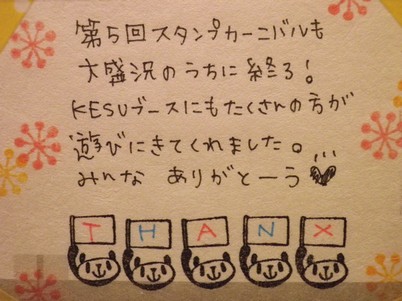 第5回スタンプカーニバルも
大盛況のうちに終る!
KESUブースにもたくさんの方が
遊びにきてくれました。
みんな ありがとーう♥
THANX